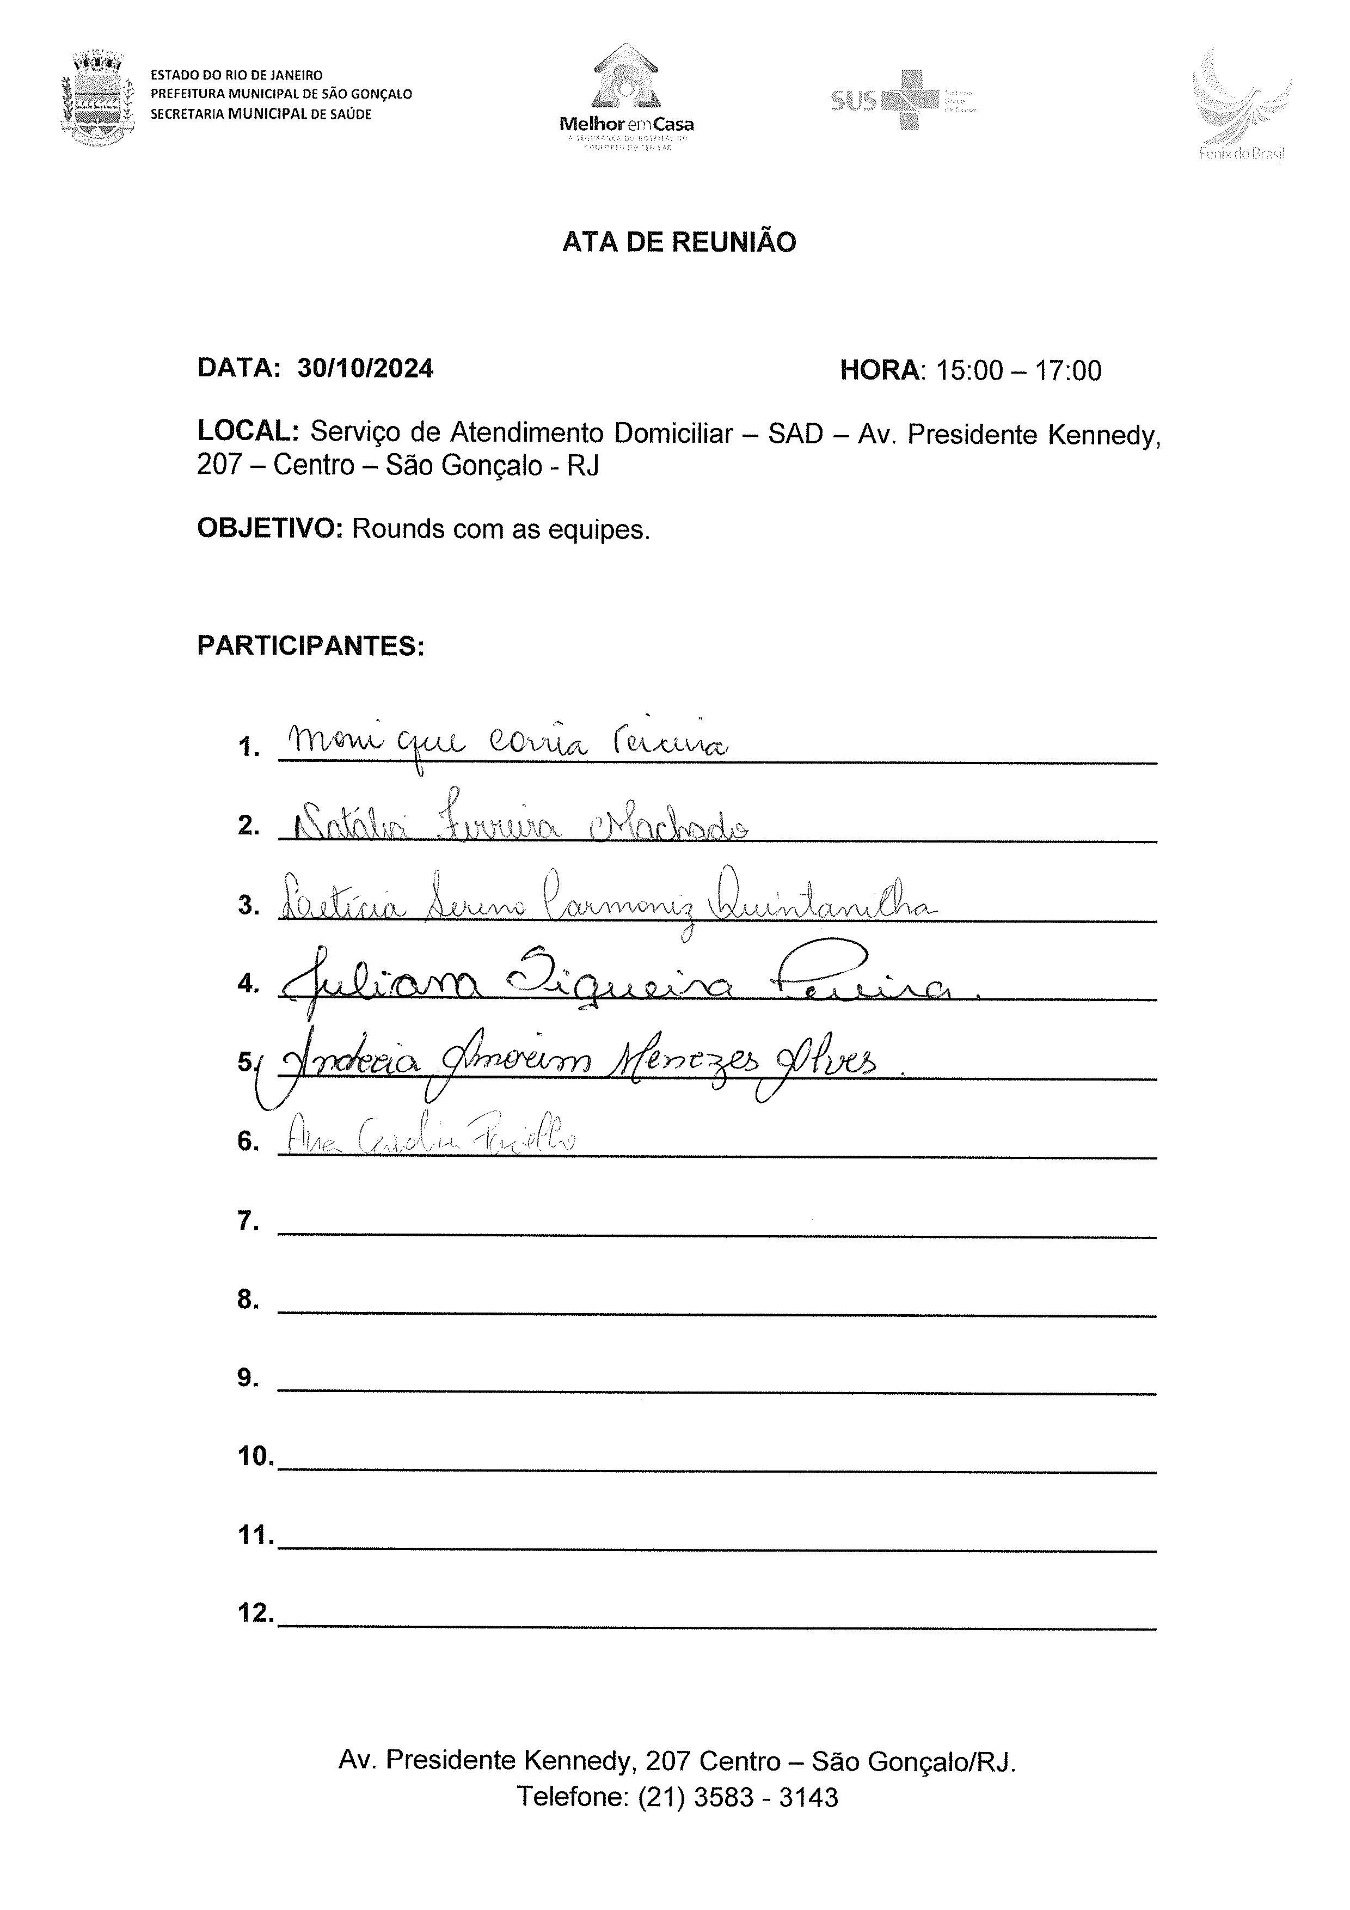 ESTADO DO RIO DE JANEIRO
PREFEITURA MUNICIPAL DE SÃO GONÇALO
SECRETARIA MUNICIPAL DE SAÚDE
Melhor em Casa
A SEGURANÇA DO HOSPITAL NO
CONFORTO DO SEU LAR
SUS
Fenix do Brasil
ATA DE REUNIÃO
DATA: 30/10/2024 HORA: 15:00 – 17:00
LOCAL: Serviço de Atendimento Domiciliar – SAD – Av. Presidente Kennedy,
207 – Centro – São Gonçalo - RJ
OBJETIVO: Rounds com as equipes.
PARTICIPANTES:
1. Monique Corrêa Teixeira
2. Natália Ferreira Machado
3. Laetícia Sereno Carmoniz Quintanilha
4. Juliana Siqueira Pereira.
5. Andreia Amorim Menezes Alves.
6. Ana Carolin
7.
8.
9.
10.
11.
12.
Av. Presidente Kennedy, 207 Centro – São Gonçalo/RJ.
Telefone: (21) 3583 - 3143